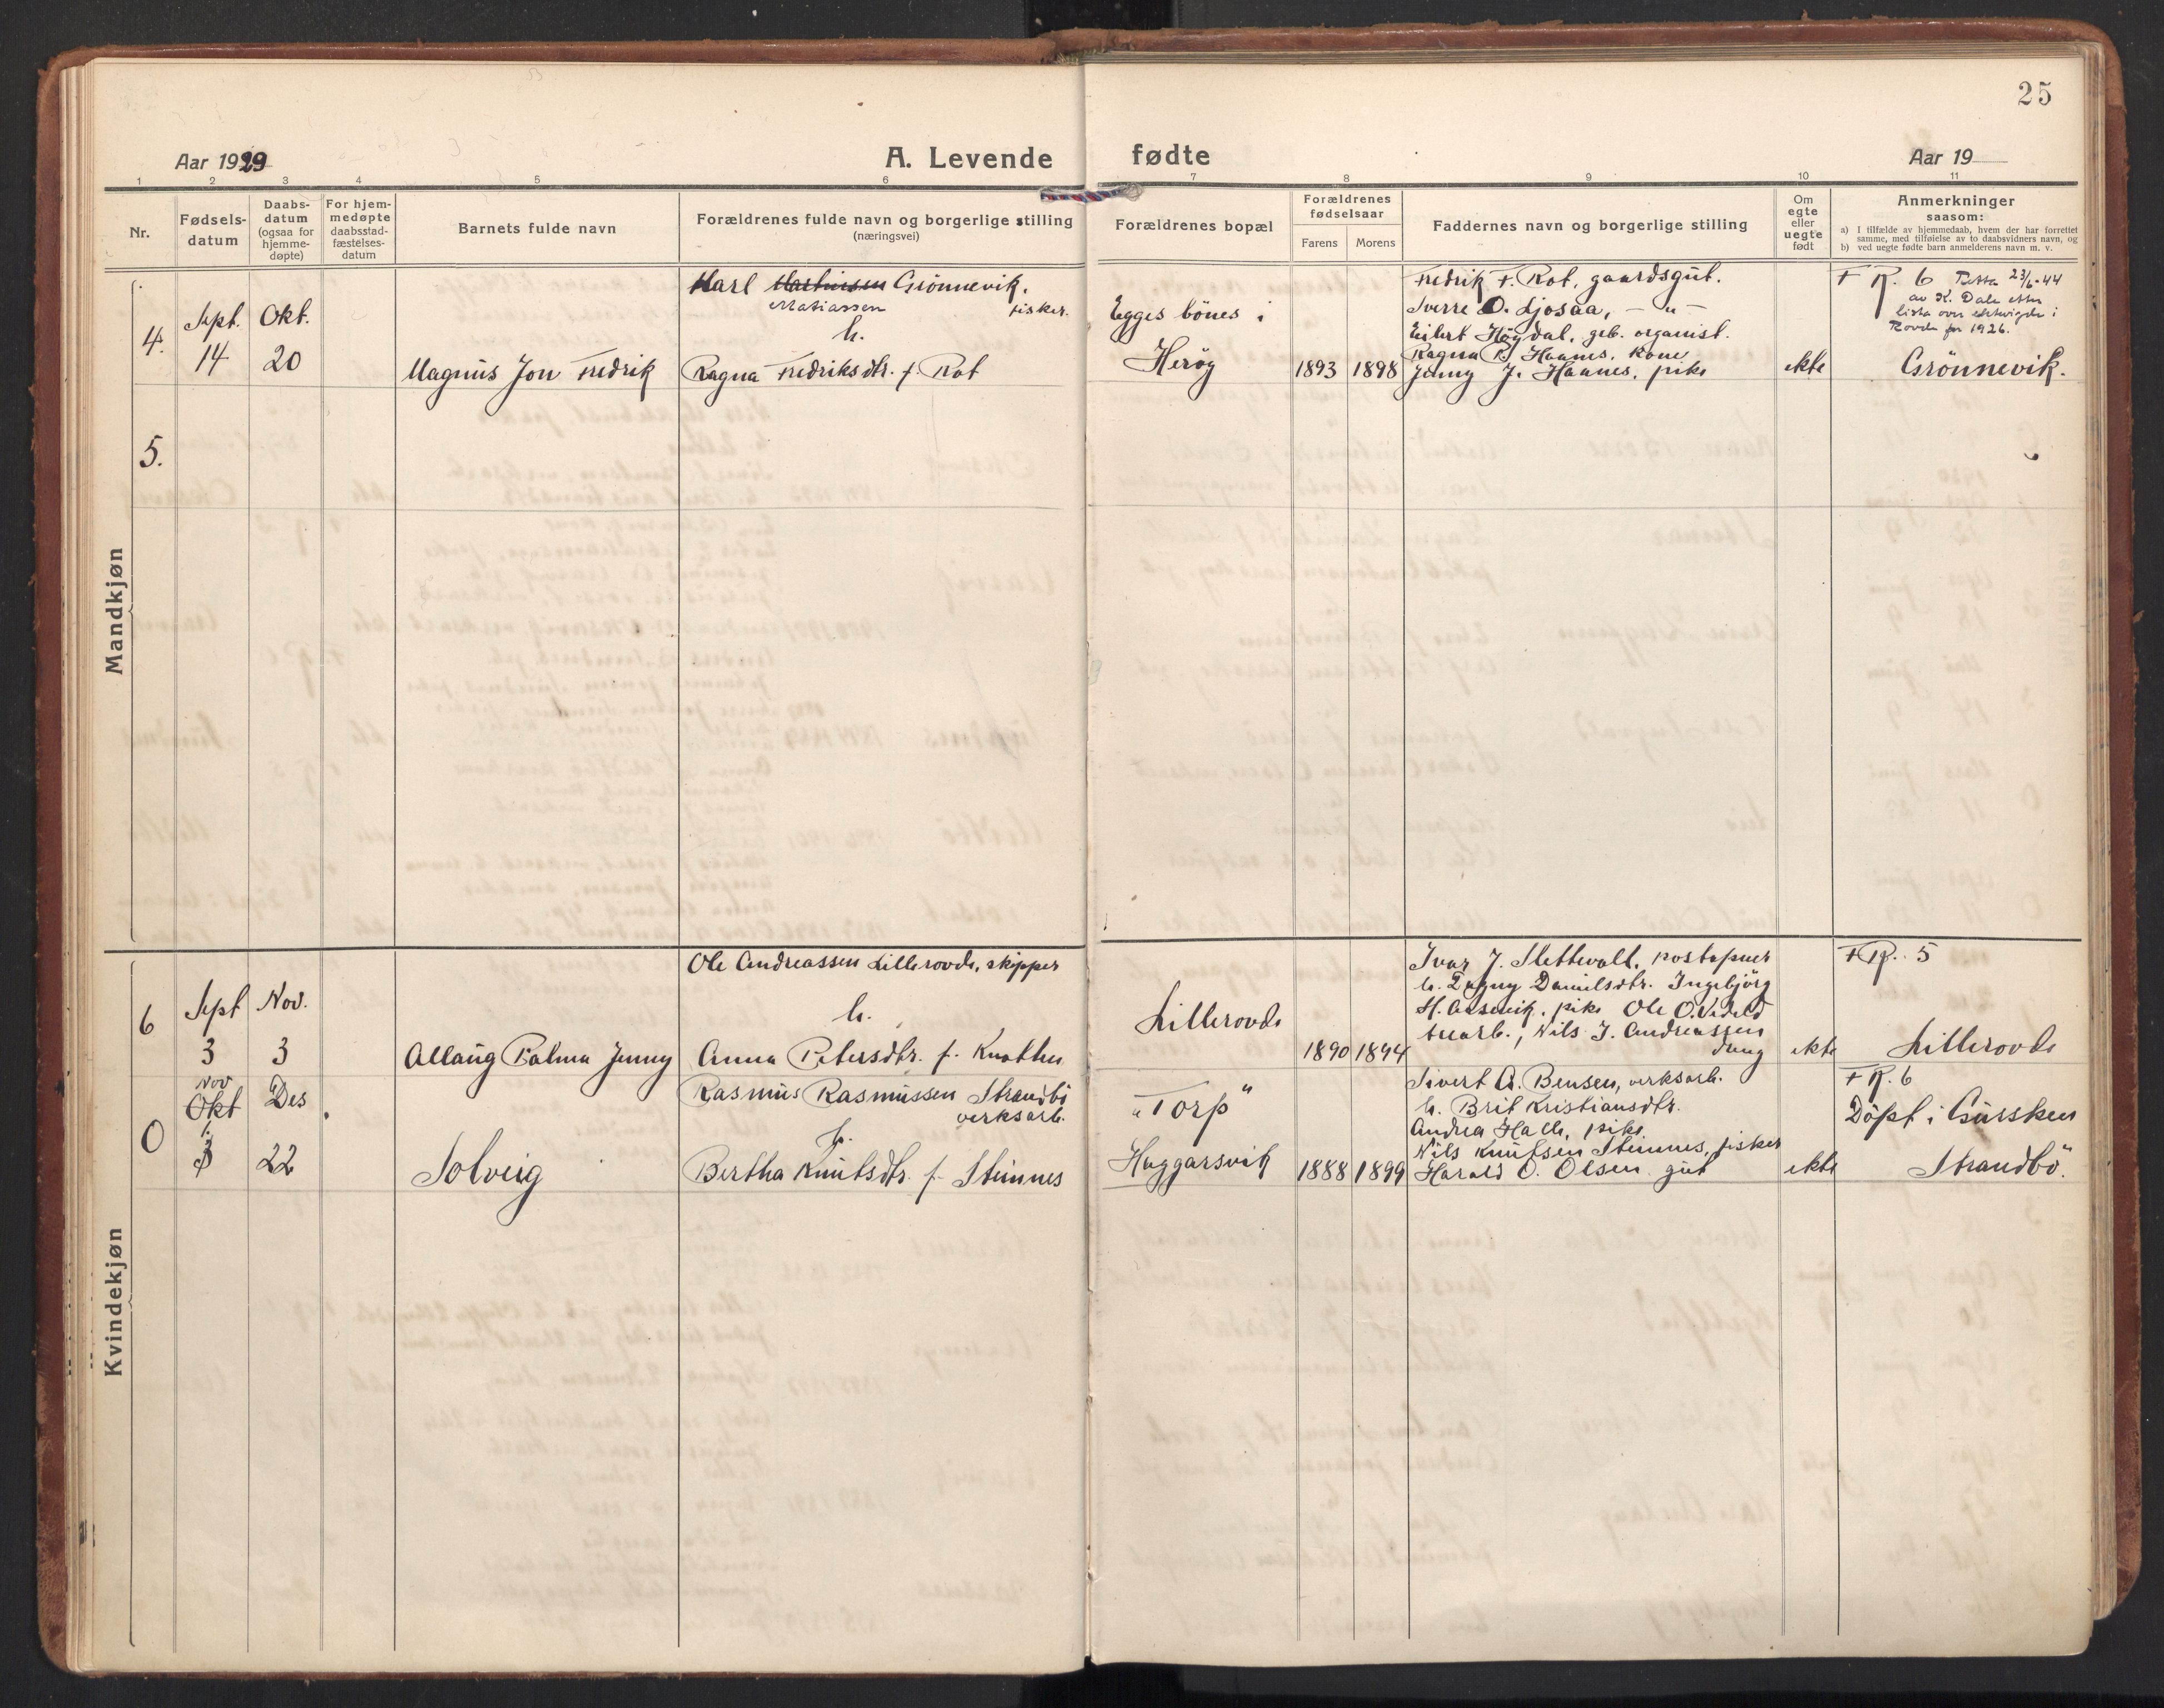 25
Aar 1929
A. Levende
fødte
Aar 19
1 2 3 4 5 6 7 8 9 10 11
Nr.
Fødsels-
datum
Daabs-
datum
(ogsaa for
hjemme-
døpte)
For hjem-
medøpte
daabsstad-
fæstelses-
datum
Barnets fulde navn
Forældrenes fulde navn og borgerlige stilling
(næringsvei)
Forældrenes bopæl
Forældrenes
fødselsaar
Farens Morens
Faddernes navn og borgerlige stilling
Om
egte
eller
uegte
født
Anmerkninger
saasom:
a) I tilfælde av hjemmedaab, hvem der har forrettet
samme, med tilføielse av to daabsvidners navn, og
b) ved uegte fødte barn anmelderens navn m. v.
Mandkjøn
4.
Sept.
14
Okt.
20
Magnus Jon Fredrik
Karl Martinssen Grönnevik.
Matiassen fisker.
h.
Ragna Fredriksdtr. f. Rot
Egges bönes i
Heröy
1893 1898
Fredrik F. Rot, gaardsgut.
Sverre O. Ljosaa, — " —
Eilert Högdal, geb. organist.
Ragna P. Haanes, kone
Jenny J. Haanes, pike
ekte
+ R. 6 23/6-44
av K. Dale etter
lista over
Rovde for 1926.
Grönnevik.
5.
Kvindekjøn
6
Sept
3
Nov.
3
Allaug Palma Jenny
Ole Andreassen Lillerovde, skipper
h.
Anna Petersdtr. f. Knotten
Lillerovde
1890 1894
Ivar J. Slettevoll, postopner
h. Dagny Danielsdtr. Ingebjörg
H. Aasevik, pike Ole O.
Nils J. Andreassen
dreng
ekte
+ R. 5
Lillerovde
0
Nov
Okt
1.
3
Des
22
Solveig
Rasmus Rasmussen Strandbö
verksarb.
h.
Bertha Knutsdtr. f. Steinnes
"Torp"
Haggarsvik
1888 1899
Sivert A. Bensen, verksarb.
h. Brit Kristiansdtr.
Andrea Halle, pike
Nils Knutsen Steinnes, fisker
Harald O. Olsen gut
ekte
+ R. 6
Döpt i Gursken
Strandbö.